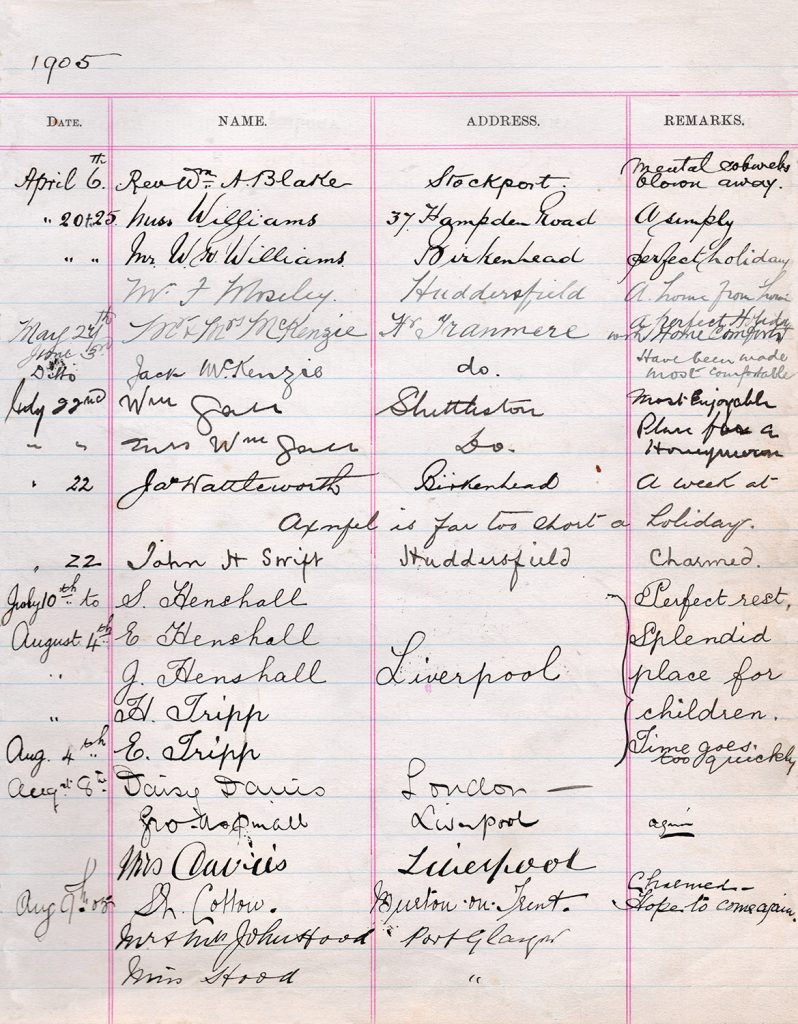 1905
DATE. NAME. ADDRESS. REMARKS.
April 6th. Rev Wm. A. Blake Stockport. Mental cobwebs blown away.
" 20+25. Miss Williams 37 Hampden Road A simply
" " Mr. W Williams. Birkenhead perfect holiday
Mr. F Moseley. Huddersfield A home from home
May 27th Mr & Mrs McKenzie Hr Tranmere A perfect Holiday
June 3rd with Home Comforts
Ditto Jack McKenzie do. Have been made most comfortable
July 22nd Wm Shettleston Most Enjoyable
" " Mrs Wm Do. Place for a Honeymoon
" 22 Jas Wattleworth Birkenhead A week at
Axnfel is far too short a holiday.
" 22 John H Swift Huddersfield Charmed.
July 10th to S. Henshall Perfect rest,
August 4th E Henshall Splendid
" J. Henshall Liverpool place for
" H. Tripp children.
Aug. 4th E. Tripp Time goes too quickly
Aug 8th Daisy Davies London —
Geo Liverpool again
Mrs Davies Liverpool
Aug 9th 05 Cottow. Burton-on-Trent. Charmed – Hope to come again.
Mr & Mrs John Hood Port Glasgow
Miss Hood "